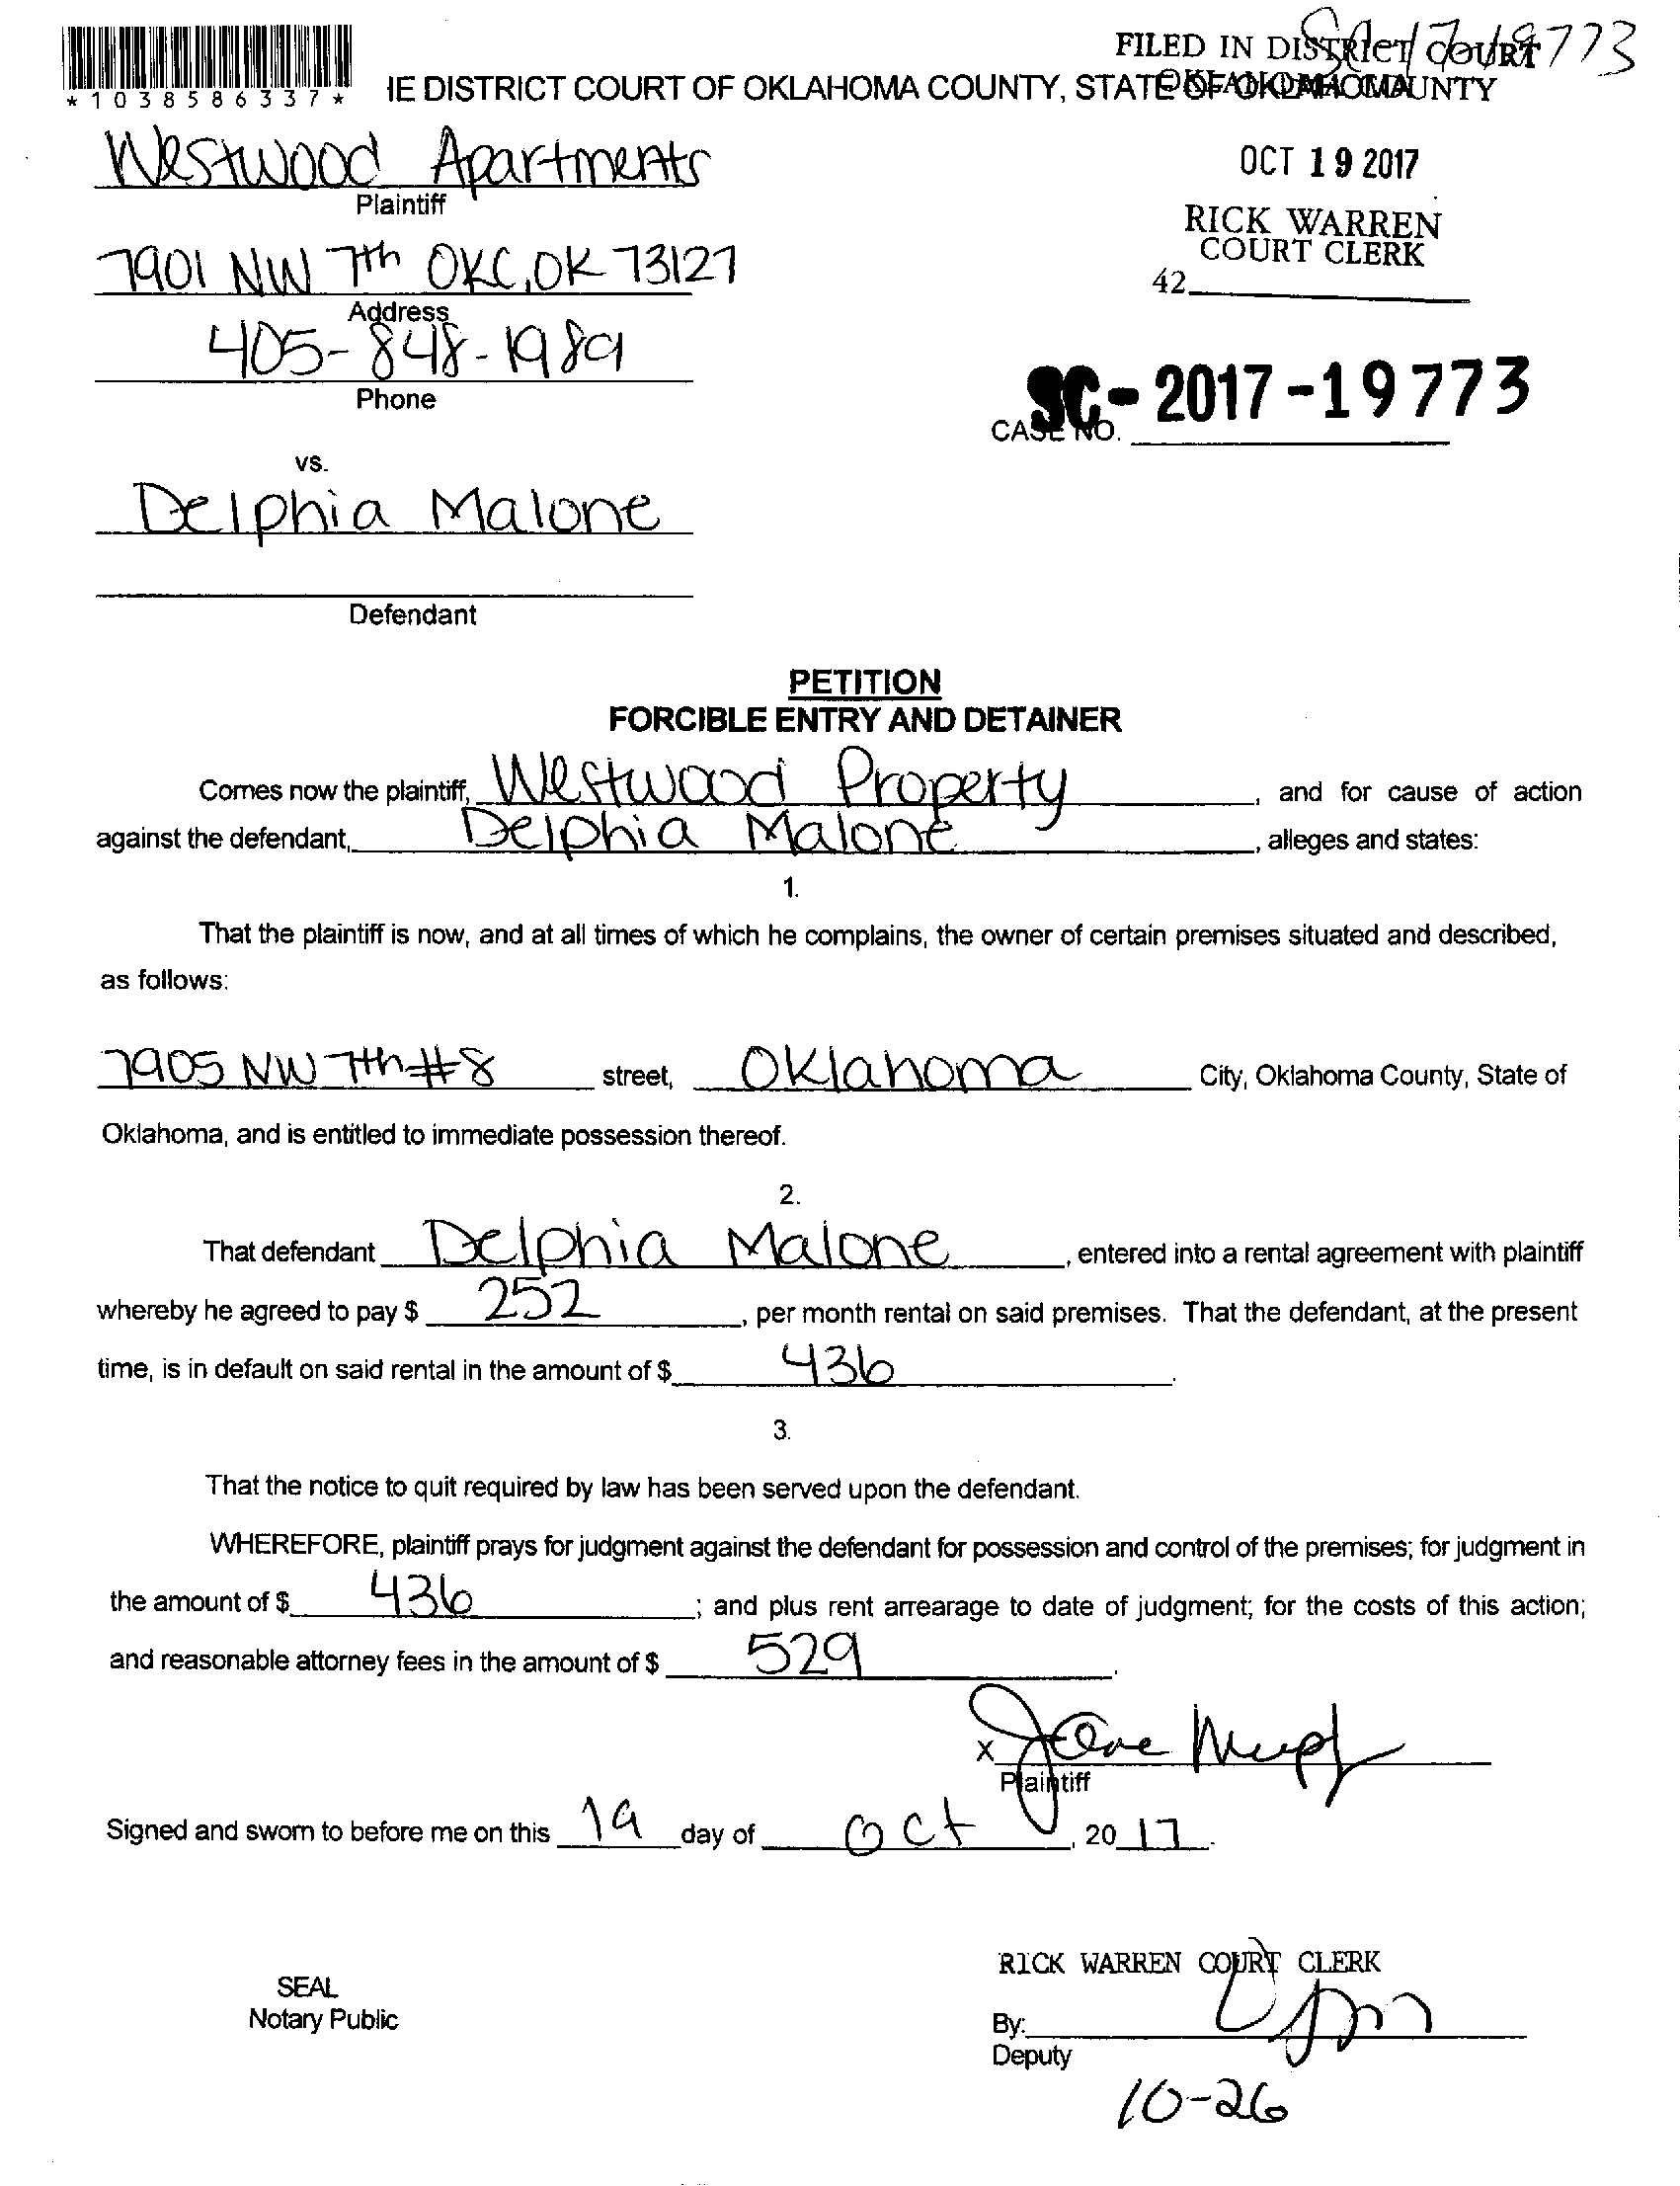 FILED IN DISTRICT COURT
OKLAHOMA COUNTY
*1038586337*
IE DISTRICT COURT OF OKLAHOMA COUNTY, STATE OF OKLAHOMA
Westwood Apartments
Plaintiff
OCT 19 2017
RICK WARREN
COURT CLERK
42
7901 NW 7th OKC, OK 73127
Address
405-848-1989
Phone
SC-2017-19773
CASE NO.
vs.
Delphia Malone
Defendant
PETITION
FORCIBLE ENTRY AND DETAINER
Comes now the plaintiff, Westwood Property, and for cause of action
against the defendant, Delphia Malone, alleges and states:
1.
That the plaintiff is now, and at all times of which he complains, the owner of certain premises situated and described,
as follows:
7905 NW 7th #8 street, Oklahoma City, Oklahoma County, State of
Oklahoma, and is entitled to immediate possession thereof.
2.
That defendant Delphia Malone, entered into a rental agreement with plaintiff
whereby he agreed to pay $ 252, per month rental on said premises. That the defendant, at the present
time, is in default on said rental in the amount of $ 436.
3.
That the notice to quit required by law has been served upon the defendant.
WHEREFORE, plaintiff prays for judgment against the defendant for possession and control of the premises; for judgment in
the amount of $ 436; and plus rent arrearage to date of judgment; for the costs of this action;
and reasonable attorney fees in the amount of $ 529.
x
Plaintiff
Signed and sworn to before me on this 19 day of Oct, 20 17.
RICK WARREN COURT CLERK
SEAL
Notary Public
By:
Deputy
10-26